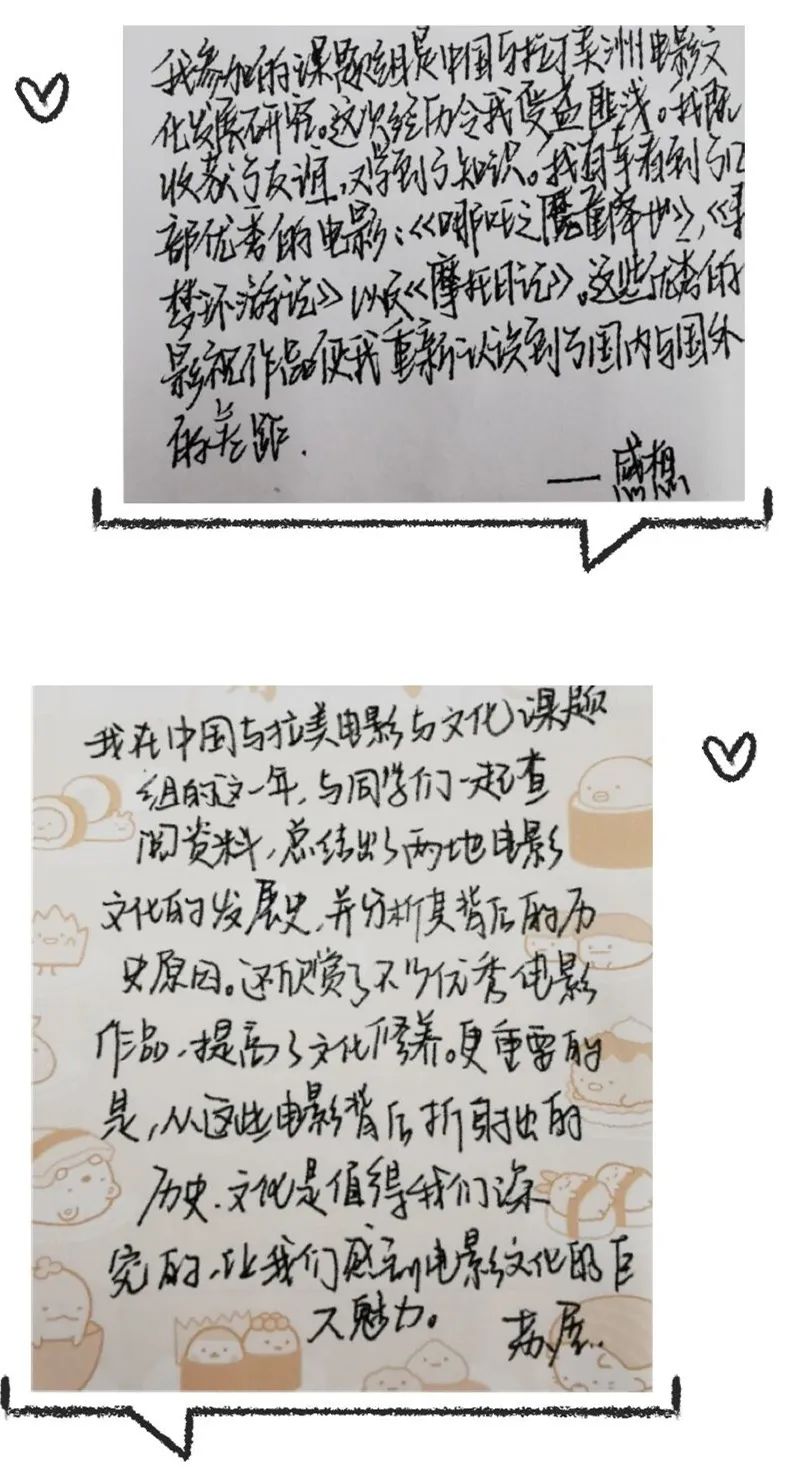 我参加的课题组是中国与拉丁美洲电影文
化发展研究。这次经历令我受益匪浅。我既
收获了友谊,又学到了知识。我有幸看到了几
部优秀的电影:《哪吒之魔童降世》,《寻
梦环游记》以及《摩托日记》。这些优秀的
影视作品使我重新认识到了国内与国外
的差距.
——感想
我在中国与拉美电影与文化课题
组的这一年,与同学们一起查
阅资料,总结出了两地电影
文化的发展史,并分析其背后的历
史原因。还欣赏了不少优秀电影
作品,提高了文化修养。更重要的
是,从这些电影背后折射出的
历史、文化是值得我们深
究的,让我们感到电影文化的巨
大魅力。